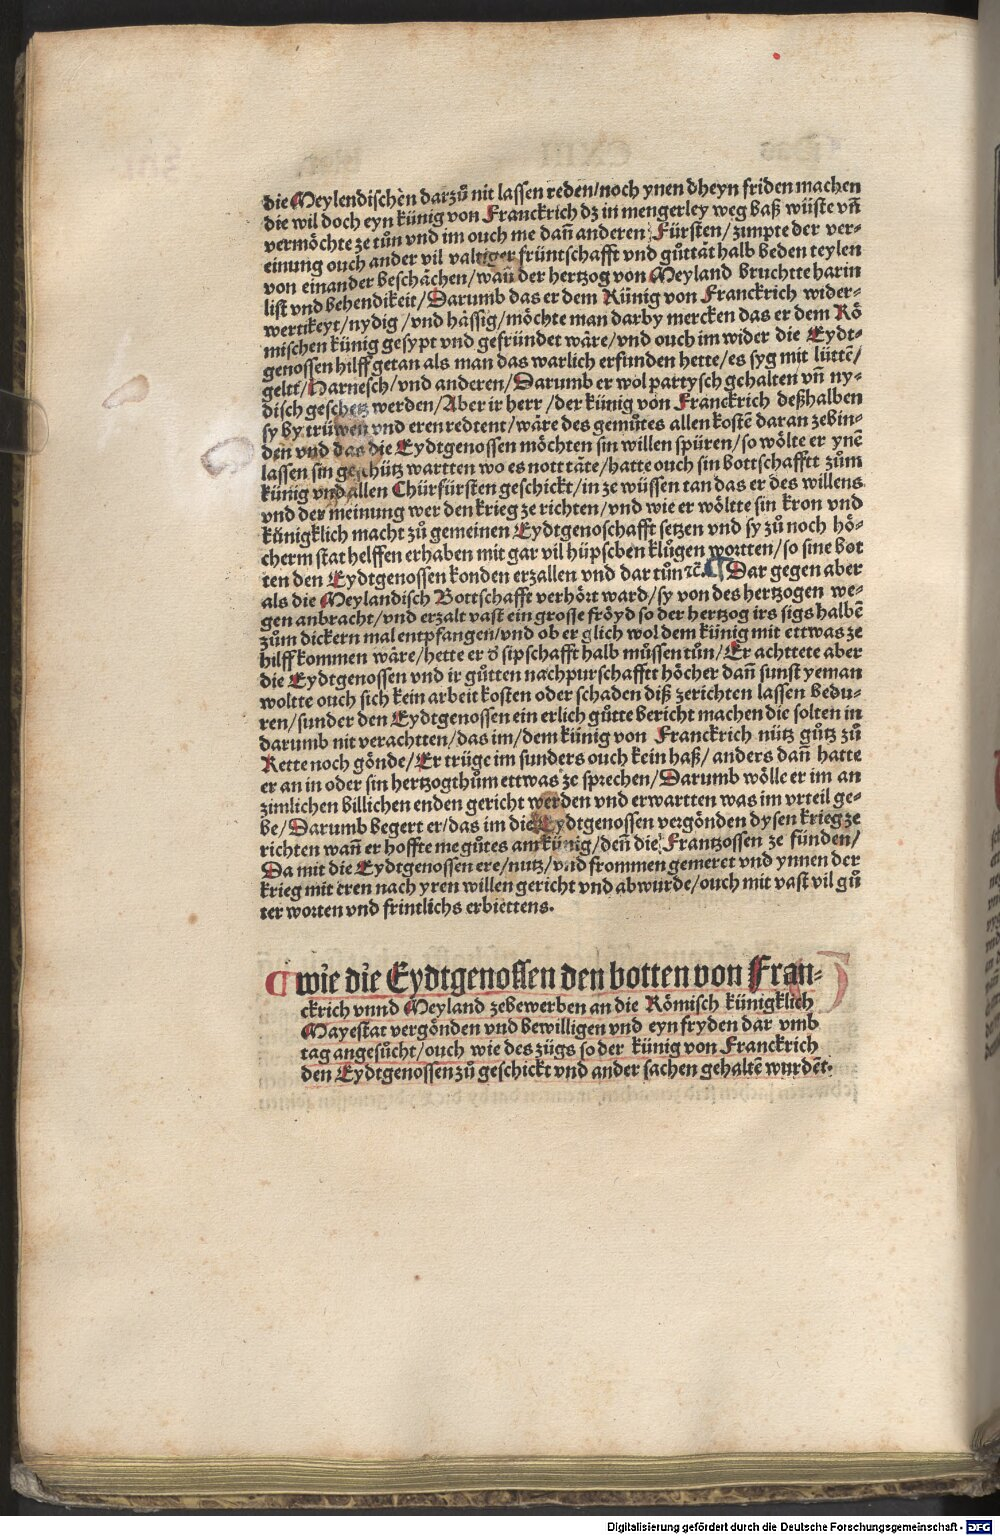 die Meylendischen darzů nit lassen reden/noch ynen dheyn friden machen
die wil doch eyn künig von Franckrich dz in mengerley weg baß wüste vñ
vermöchte ze tůn vnd im ouch me dañ anderen Fürsten/zimpte der ver-
einung ouch ander vil valtiger früntschafft vnd gůttät halb beden teylen
von einander beschächen/wañ der hertzog von Meyland bruchtte harin
list vnd behendikeit/Darumb das er dem Künig von Franckrich wider-
wertikeyt/nydig/vnd hässig/möchte man darby mercken das er dem Rö
mischen künig gesypt vnd gefründet wäre/vnd ouch im wider die Eydt-
genossen hilff getan als man das warlich erfunden hette/es syg mit lüttē/
geltt/Harnesch/vnd anderen/Darumb er wol partysch gehalten vñ ny-
disch geschetz werden/Aber ir herr/der künig von Franckrich deßhalben
sy by trüwen vnd eren redtent/wäre des gemůtes allen kostē daran zebin-
den vnd das die Eydtgenossen möchten sin willen spüren/so wölte er ynē
lassen sin geschütz wartten wo es nott täte/hatte ouch sin bottschafftt zům
künig vnd allen Chürfürsten geschickt/in ze wüssen tan das er des willens
vnd der meinung wer den krieg ze richten/vnd wie er wöltte sin kron vnd
künigklich macht zů gemeinen Eydtgenoschafft setzen vnd sy zů noch hö-
cherm stat helffen erhaben mit gar vil hüpschen klůgen wortten/so sine bot
ten den Eydtgenossen konden erzallen vnd dar tůn ⁊c̃. ¶ Dar gegen aber
als die Meylandisch Bottschafft verhört ward/sy von des hertzogen we-
gen anbracht/vnd erzalt vast ein grosse fröyd so der hertzog irs sigs halbē
zům dickern mal entpfangen/vnd ob er glich wol dem künig mit ettwas ze
hilff kommen wäre/hette er d' sipschafft halb můssen tůn/Er achttete aber
die Eydtgenossen vnd ir gůtten nachpurschafftt höcher dañ sunst yeman
woltte ouch sich kein arbeit kosten oder schaden diß zerichten lassen bedu-
ren/sunder den Eydtgenossen ein erlich gůtte bericht machen die solten in
darumb nit verachtten/das im/dem künig von Franckrich nütz gůtz zů
Rette noch gönde/Er trüge im sunders ouch kein haß/anders dañ hatte
er an in oder sin hertzogthům ettwas ze sprechen/Darumb wölle er im an
zimlichen billichen enden gericht werden vnd erwartten was im vrteil ge-
be/Darumb begert er/das im die Eydtgenossen vergönden dysen krieg ze
richten wañ er hoffte me gůtes am künig/deñ die Frantzossen ze fünden/
Da mit die Eydtgenossen ere/nutz/vnd frommen gemeret vnd ynnen der
krieg mit eren nach yren willen gericht vnd abwurde/ouch mit vast vil gů
ter worten vnd frintlichs erbiettens.
¶ wie die Eydtgenossen den botten von Fran-
ckrich vnnd Meyland zebewerben an die Römisch künigklich
Mayestat vergönden vnd bewilligen vnd eyn fryden dar vmb
tag angesůcht/ouch wie des zügs so der künig von Franckrich
den Eydtgenossen zů geschickt vnd ander sachen gehaltē wurdēt.
Digitalisierung gefördert durch die Deutsche Forschungsgemeinschaft - DFG